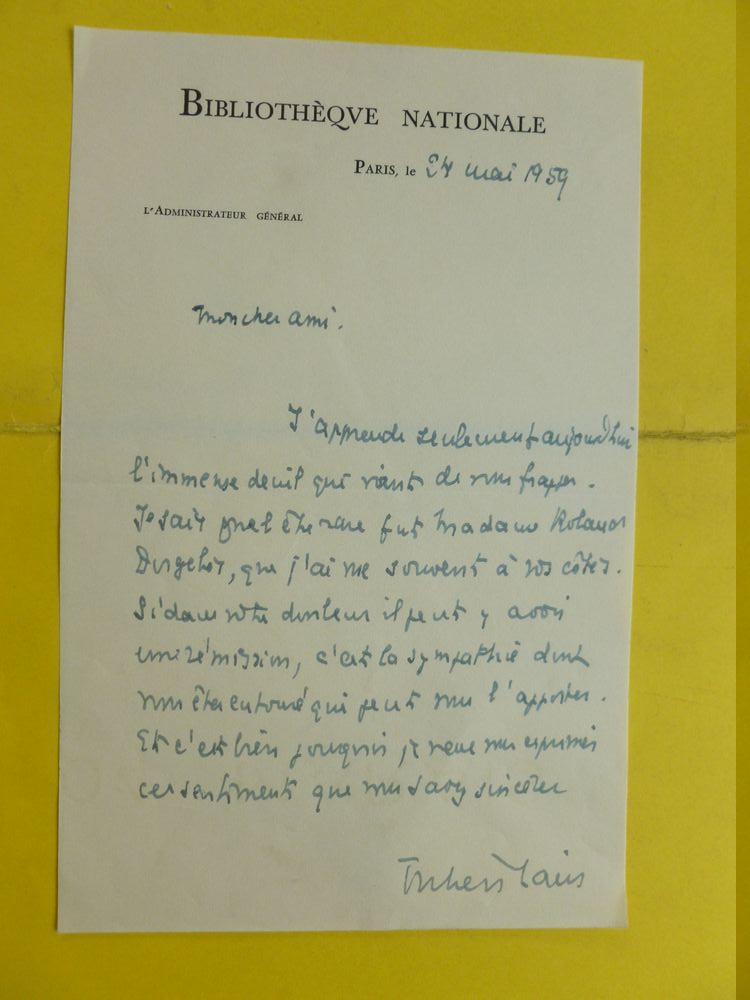 BIBLIOTHÈQVE NATIONALE
PARIS, le 24 mai 1959
L'ADMINISTRATEUR GÉNÉRAL
Mon cher ami.
J'apprends seulement aujourd'hui
l'immense deuil qui vient de vous frapper.
Je sais quel être rare fut Madame Roland
Dorgelès, que j'ai vue souvent à vos côtés.
Si dans votre douleur il peut y avoir
une rémission, c'est la sympathie dont
vous êtes entouré qui peut vous l'apporter.
Et c'est bien pourquoi je veux vous exprimer
ces sentiments que vous savez sincères
Cain